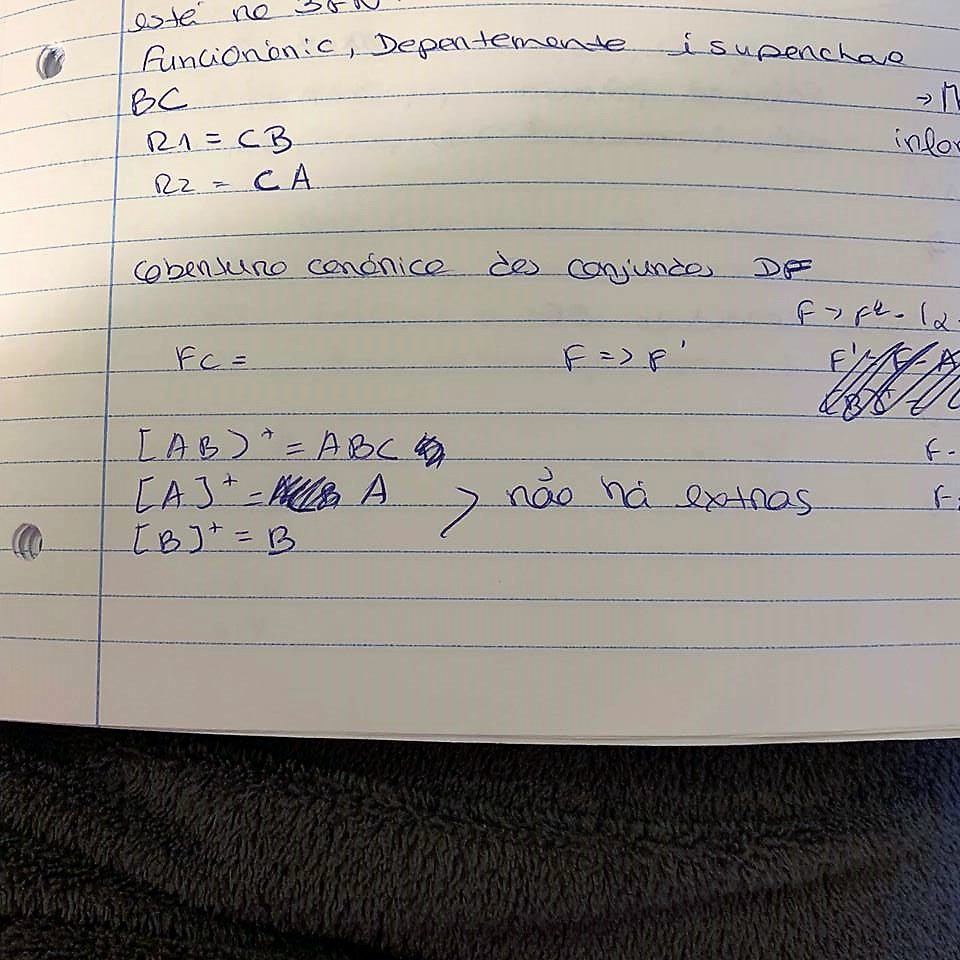 está no 3FN
Funcionónic, Depentemente i supenchave
BC
→
R1 = CB
R2 = CA
Cobenturo canónico des conjuntos DF
Fc =
F => F'
[AB)⁺ = ABC
[A]⁺ = A > não há extras
[B]⁺ = B